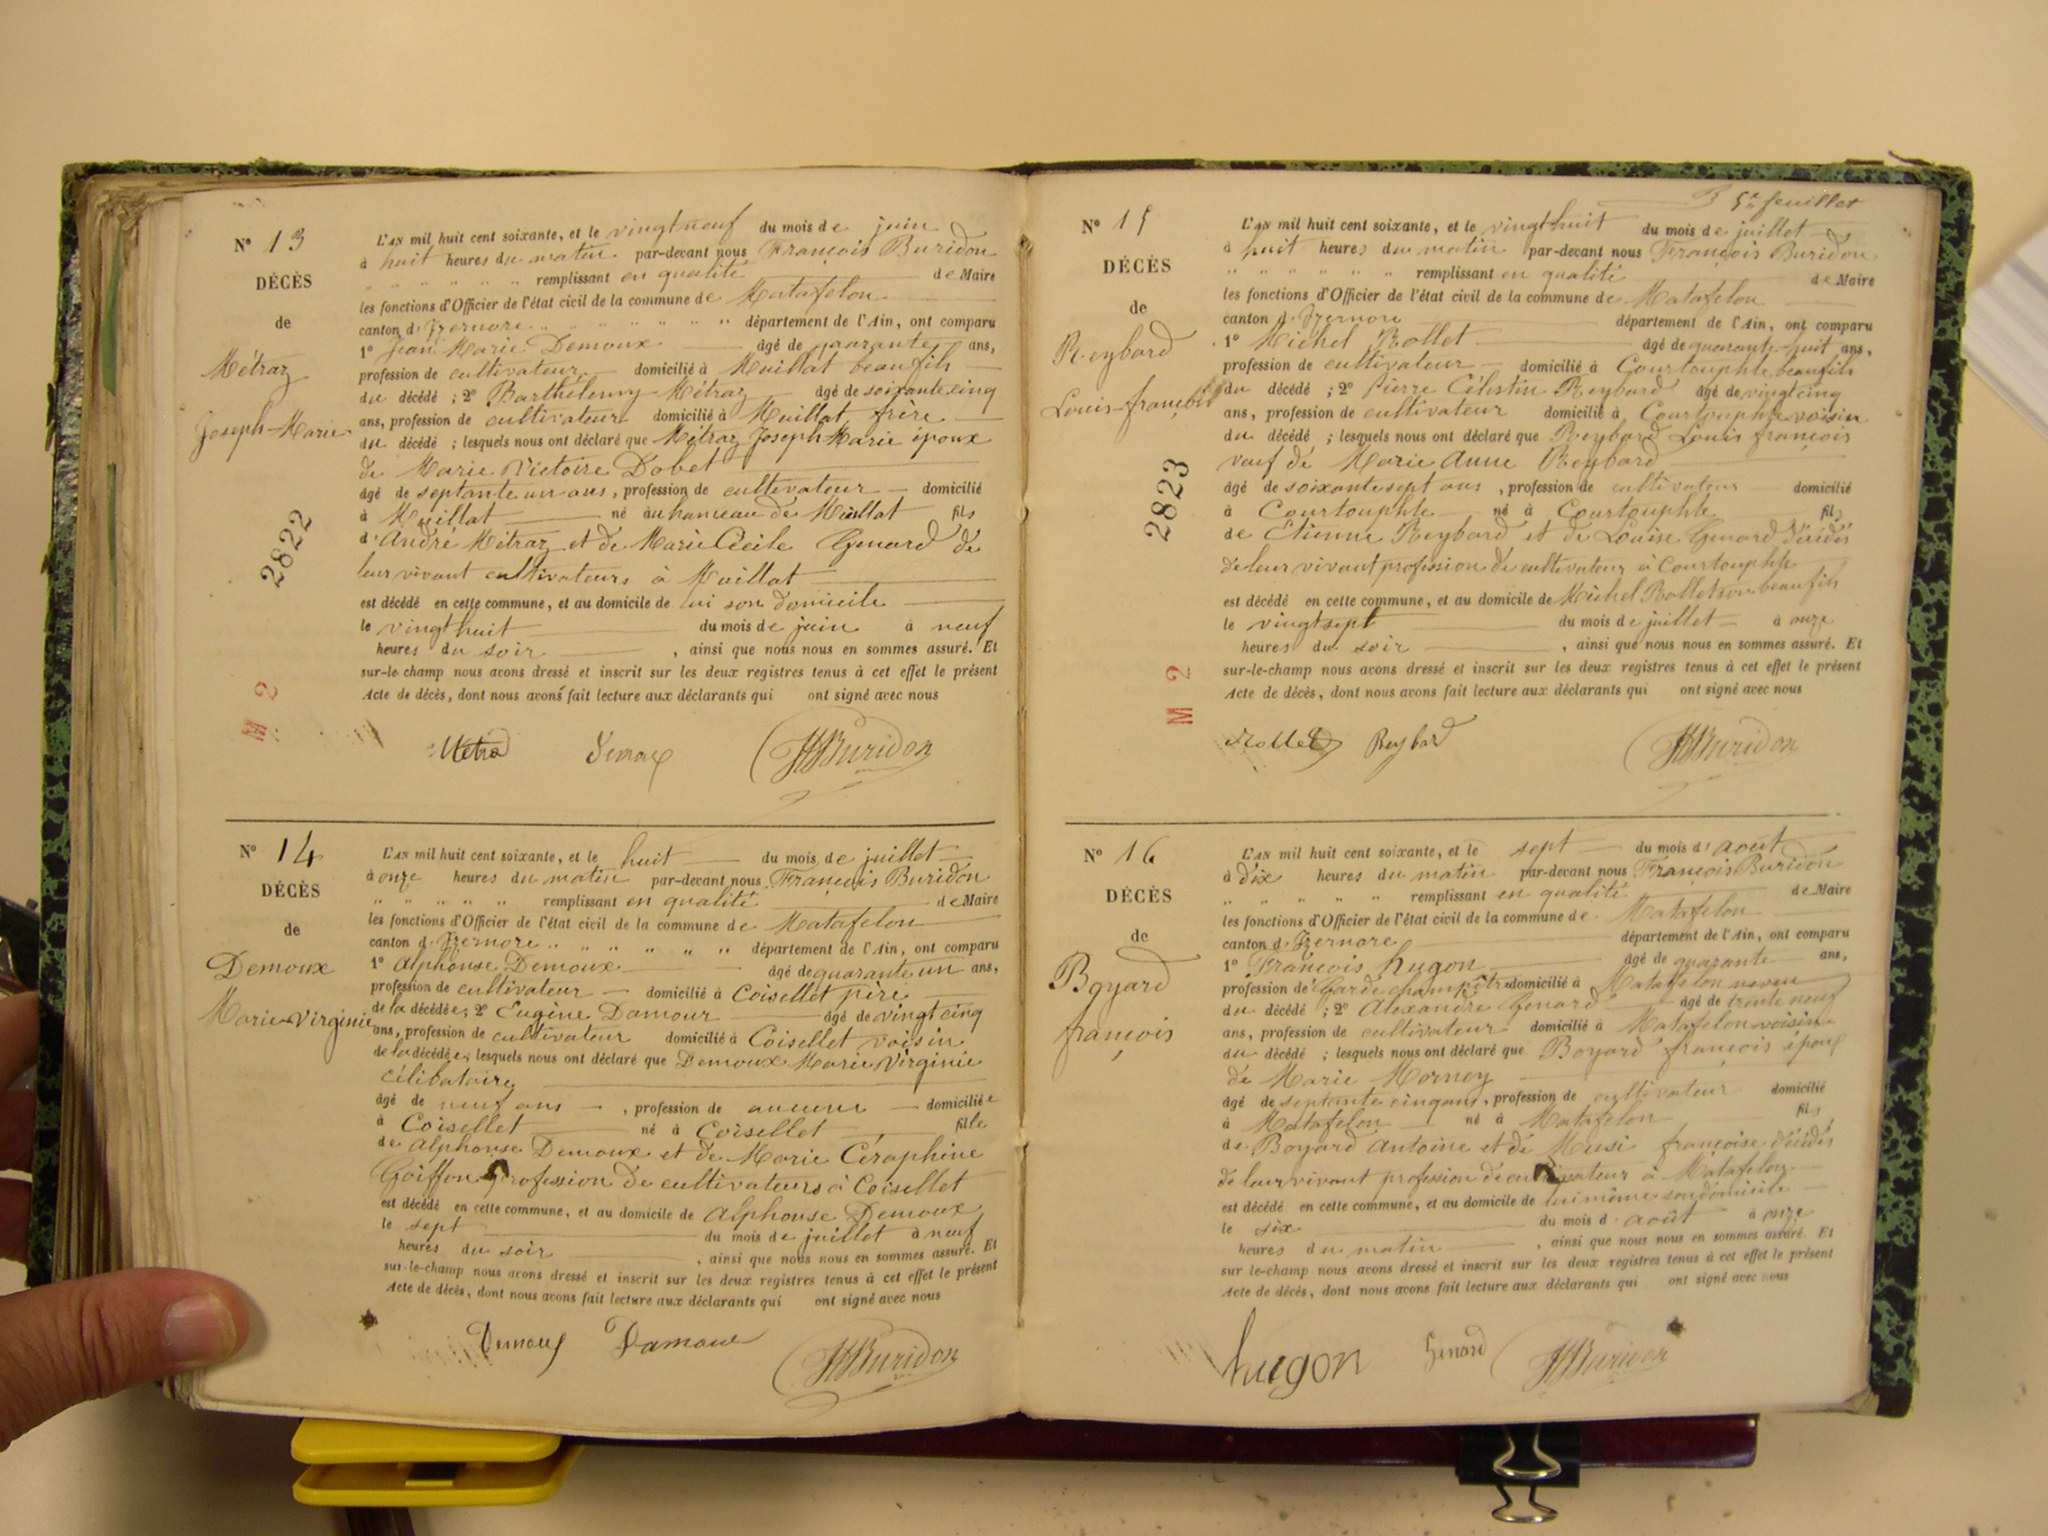 N° 13
DÉCÈS
de
Métraz
Joseph-Marie
2822
M 2
L'AN mil huit cent soixante, et le vingt neuf du mois de juin
à huit heures du matin par-devant nous François Buridon
" " " " " " remplissant en qualité de Maire
les fonctions d'Officier de l'état civil de la commune de Matafelon
canton d'Izernore " " " " " " " département de l'Ain, ont comparu
1° Jean Marie Demoux âgé de quarante ans,
profession de cultivateur domicilié à Meillat beaufils
du décédé ; 2° Barthélemy Métraz âgé de soixante cinq
ans, profession de cultivateur domicilié à Meillat frère
du décédé ; lesquels nous ont déclaré que Métraz Joseph Marie époux
de Marie Victoire Dobet
âgé de septante un ans, profession de cultivateur domicilié
à Meillat né au hameau de Meillat fils
d'André Métraz et de Marie Cécile Genard de
leur vivant cultivateurs à Meillat
est décédé en cette commune, et au domicile de lui son domicile
le vingt huit du mois de juin à neuf
heures du soir , ainsi que nous nous en sommes assuré. Et
sur-le-champ nous avons dressé et inscrit sur les deux registres tenus à cet effet le présent
Acte de décès, dont nous avons fait lecture aux déclarants qui ont signé avec nous
Métra Demoux Buridon
N° 14
DÉCÈS
de
Demoux
Marie Virginie
L'AN mil huit cent soixante, et le huit du mois de juillet
à onze heures du matin par-devant nous François Buridon
" " " " " remplissant en qualité de Maire
les fonctions d'Officier de l'état civil de la commune de Matafelon
canton d'Izernore " " " " " " " département de l'Ain, ont comparu
1° Alphonse Demoux âgé de quarante un ans,
profession de cultivateur domicilié à Coisellet père
de la décédée; 2° Eugène Damour âgé de vingt cinq
ans, profession de cultivateur domicilié à Coisellet voisin
de la décédée; lesquels nous ont déclaré que Demoux Marie Virginie
célibataire
âgé de neuf ans , profession de aucune domiciliée
à Coisellet né à Coisellet fille
de Alphonse Demoux et de Marie Céraphine
Goiffon profession de cultivateurs à Coisellet
est décédé en cette commune, et au domicile de Alphonse Demoux
le sept du mois de juillet à neuf
heures du soir , ainsi que nous nous en sommes assuré. Et
sur-le-champ nous avons dressé et inscrit sur les deux registres tenus à cet effet le présent
Acte de décès, dont nous avons fait lecture aux déclarants qui ont signé avec nous
Demoux Damour Buridon
5e feuillet
N° 15
DÉCÈS
de
Reybard
Louis-françois
2823
M 2
L'AN mil huit cent soixante, et le vingt huit du mois de juillet
à huit heures du matin par-devant nous François Buridon
" " " " " " remplissant en qualité de Maire
les fonctions d'Officier de l'état civil de la commune de Matafelon
canton d'Izernore département de l'Ain, ont comparu
1° Michel Rollet âgé de quarante-huit ans,
profession de cultivateur domicilié à Courtouphle beaufils
du décédé ; 2° Pierre Célestin Reybard âgé de vingt cinq
ans, profession de cultivateur domicilié à Courtouphle voisin
du décédé ; lesquels nous ont déclaré que Reybard Louis françois
veuf de Marie Anne Reybard
âgé de soixante sept ans , profession de cultivateur domicilié
à Courtouphle né à Courtouphle fils
de Etienne Reybard et de Louise Genard décédés
de leur vivant profession de cultivateur à Courtouphle
est décédé en cette commune, et au domicile de Michel Rollet son beau fils
le vingt sept du mois de juillet à onze
heures du soir , ainsi que nous nous en sommes assuré. Et
sur-le-champ nous avons dressé et inscrit sur les deux registres tenus à cet effet le présent
Acte de décès, dont nous avons fait lecture aux déclarants qui ont signé avec nous
Rollet Reybard Buridon
N° 16
DÉCÈS
de
Boyard
françois
L'AN mil huit cent soixante, et le sept du mois d'août
à dix heures du matin par-devant nous François Buridon
" " " " " remplissant en qualité de Maire
les fonctions d'Officier de l'état civil de la commune de Matafelon
canton d'Izernore département de l'Ain, ont comparu
1° François hugon âgé de quarante ans,
profession de Garde champêtre domicilié à Matafelon neveu
du décédé ; 2° Alexandre Genard âgé de trente neuf
ans, profession de cultivateur domicilié à Matafelon voisin
du décédé ; lesquels nous ont déclaré que Boyard françois époux
de Marie Mornay
âgé de septante cinq ans, profession de cultivateur domicilié
à Matafelon né à Matafelon fils
de Boyard Antoine et de françoise décédés
de leur vivant profession de cultivateur à Matafelon
est décédé en cette commune, et au domicile de lui même son domicile
le six du mois d'août à onze
heures du matin , ainsi que nous nous en sommes assuré. Et
sur le-champ nous avons dressé et inscrit sur les deux registres tenus à cet effet le présent
Acte de décès, dont nous avons fait lecture aux déclarants qui ont signé avec nous
hugon Genard Buridon